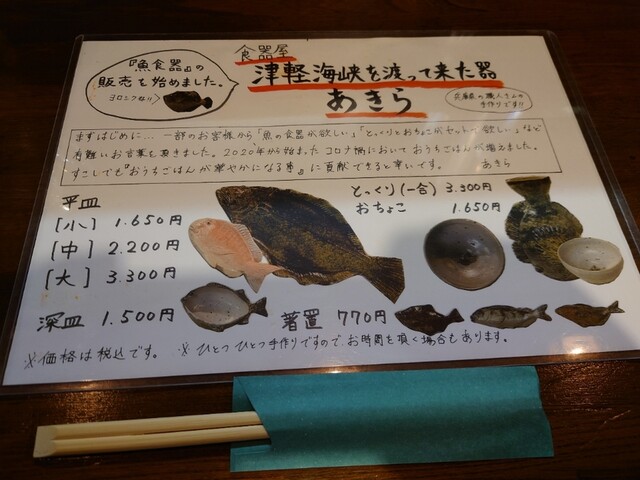 『魚食器』の
販売を始めました。
ヨロシクね!!
食器屋
津軽海峡を渡って来た器
あきら
兵庫県の職人さんの
手作りです!!
まずはじめに… 一部のお客様から「魚の食器が欲しい」「とっくりとおちょこがセットで欲しい」など
有難いお言葉を頂きました。2020年から始まったコロナ禍においておうちごはんが増えました。
すこしでも『おうちごはんが華やかになる事』に貢献できると幸いです。 あきら
平皿
[小] 1.650円
[中] 2.200円
[大] 3.300円
深皿 1.500円
とっくり(一合) 3.300円
おちょこ 1.650円
箸置 770円
※価格は税込です。 ※ひとつひとつ手作りですのでお時間を頂く場合もあります。